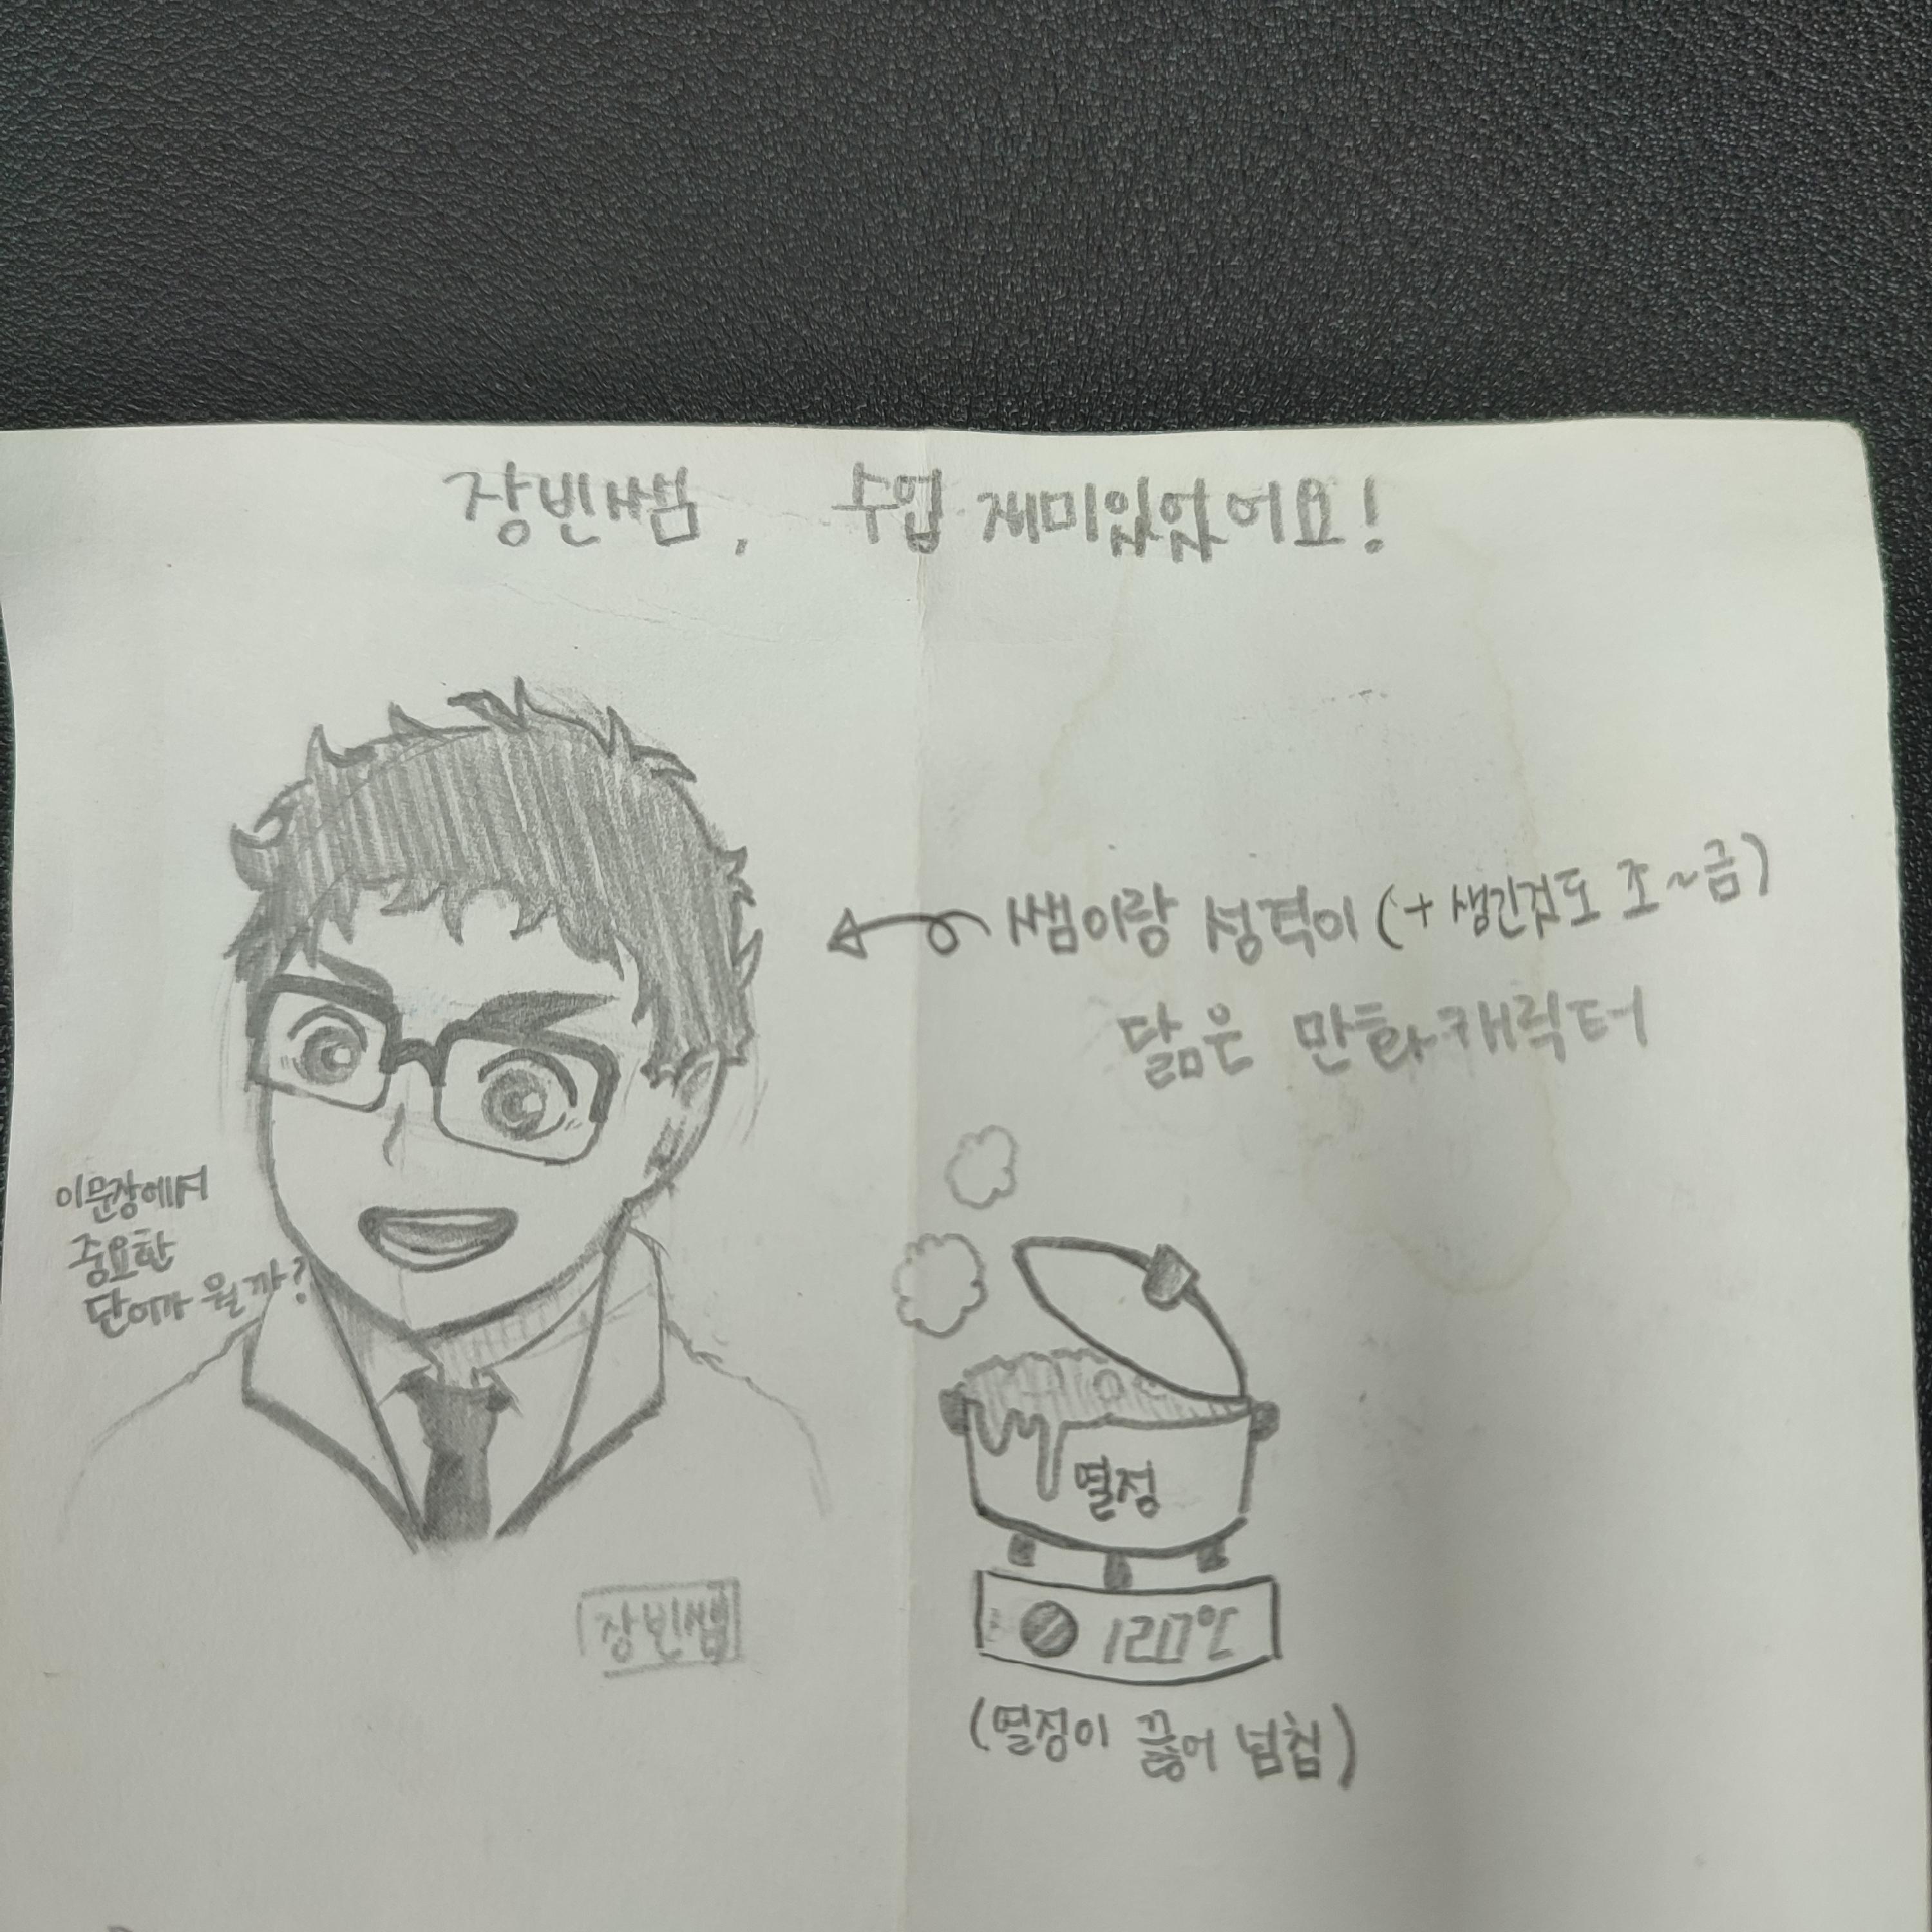 장빈쌤, 수업 재미있었어요!
쌤이랑 성격이 (+ 생긴것도 조~금)
닮은 만화캐릭터
이문장에서
중요한
단어가 뭘까?
열정
120℃
장빈쌤
(열정이 끓어 넘침)